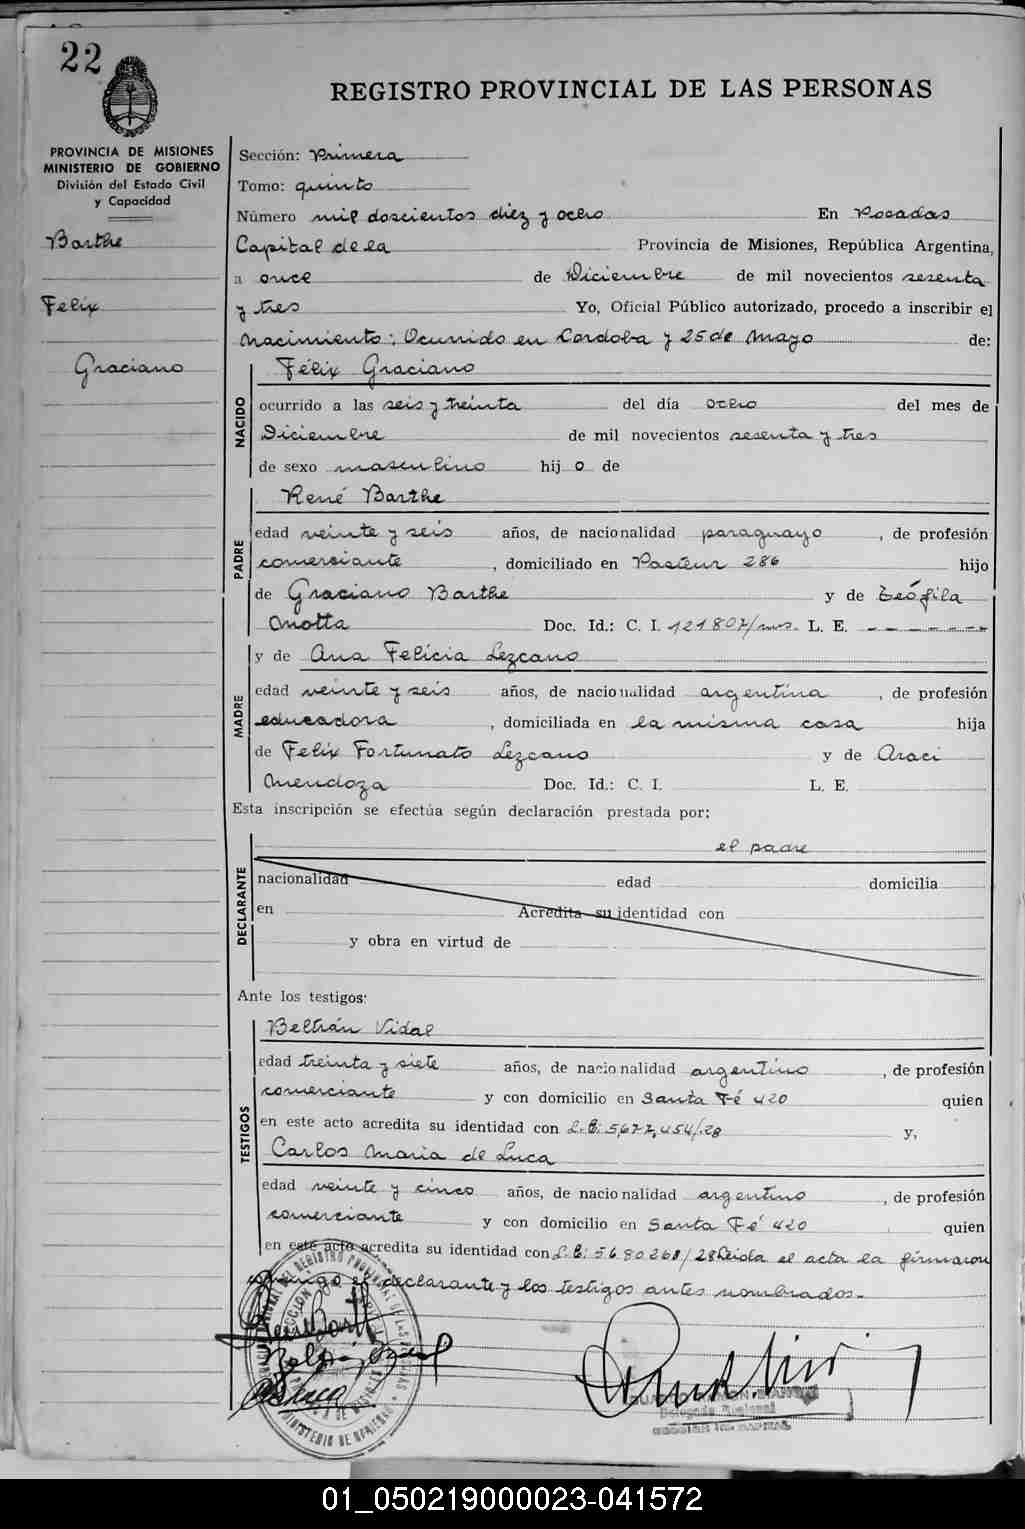 22
REGISTRO PROVINCIAL DE LAS PERSONAS
PROVINCIA DE MISIONES
MINISTERIO DE GOBIERNO
División del Estado Civil
y Capacidad
Barthe
Felix
Graciano
Sección: Primera
Tomo: quinto
Número mil doscientos diez y ocho En Posadas
Capital de la Provincia de Misiones, República Argentina,
a once de Diciembre de mil novecientos sesenta
y tres Yo, Oficial Público autorizado, procedo a inscribir el
Nacimiento; Ocurrido en Cordoba y 25 de Mayo de:
NACIDO
Félix Graciano
ocurrido a las seis y treinta del día ocho del mes de
Diciembre de mil novecientos sesenta y tres
de sexo masculino hij o de
PADRE
René Barthe
edad veinte y seis años, de nacionalidad paraguayo, de profesión
comerciante, domiciliado en Pasteur 286 hijo
de Graciano Barthe y de Teófila
Motta Doc. Id.: C. I. 121807/ms. L. E. - - - - - - -
MADRE
y de Ana Felicia Lezcano
edad veinte y seis años, de nacionalidad argentina, de profesión
educadora, domiciliada en la misma casa hija
de Felix Fortunato Lezcano y de Araci
Mendoza Doc. Id.: C. I. L. E.
Esta inscripción se efectúa según declaración prestada por:
DECLARANTE
el padre
nacionalidad edad domicilia
en Acredita su identidad con
y obra en virtud de
Ante los testigos:
TESTIGOS
Beltrán Vidal
edad treinta y siete años, de nacionalidad argentino, de profesión
comerciante y con domicilio en Santa Fé 420 quien
en este acto acredita su identidad con L.E: 5,677,454/.28 y,
Carlos Maria de Luca
edad veinte y cinco años, de nacionalidad argentino, de profesión
comerciante y con domicilio en Santa Fé 420 quien
en este acto acredita su identidad con L.E: 5680268/28 Leida el acta la firmaron
el declarante y los testigos antes nombrados.-
MINISTERIO DE GOBIERNO
Delegado Regional
01_050219000023-041572